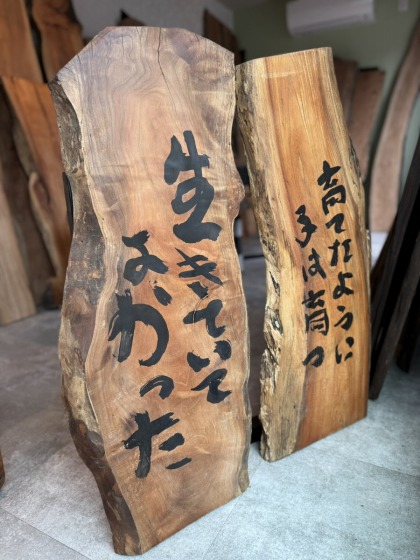 生きていて
よかった
育てたように
子は育つ